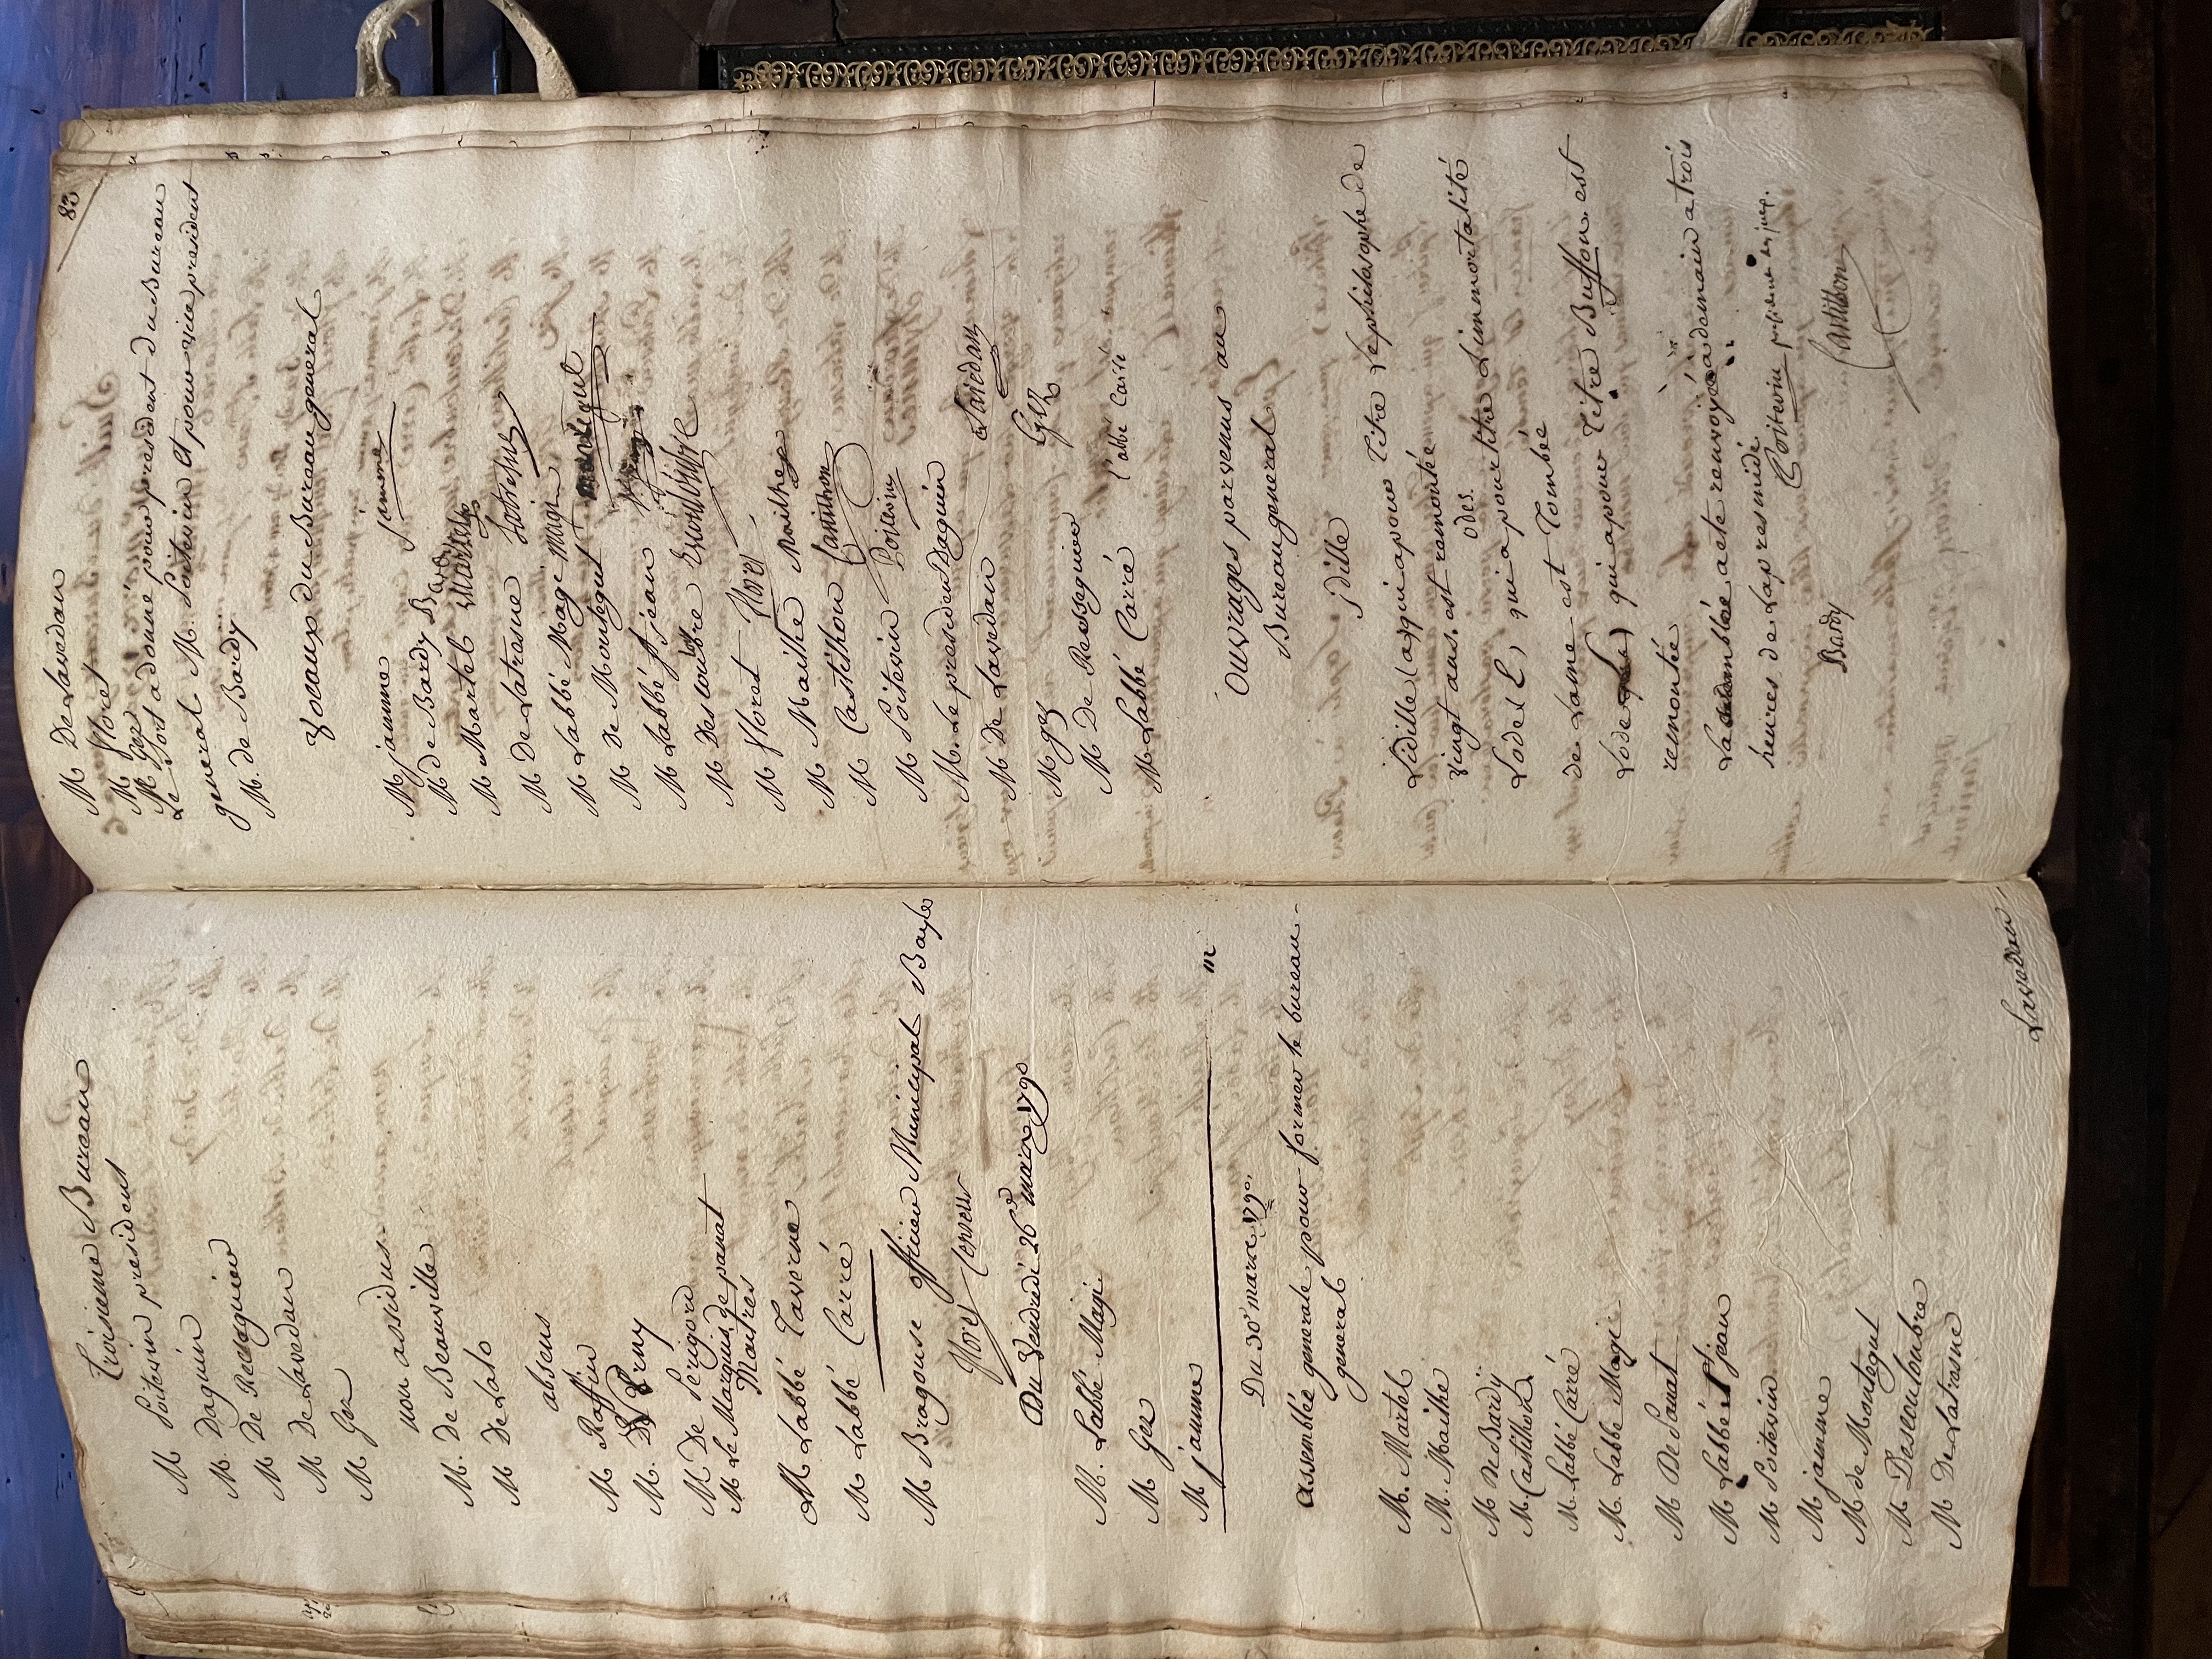 Troisieme Bureau
M Poitevin president
M. Daguin
M De Resseguier
M De Lavedan
M Gez
non assidus
M. De Beauville
M De Lalo
absens
M Raffin
M. De
M De Perigord
M Le Marquis de panat
Maitres
M Labbé Taverne
M Labbé Carré
M Bragouse officier Municipal Bayle
Floret
Du Vendredi 26e mars 1790
M. Labbé Magi
M Gez
M jamme
Du 30e mars 1790.
assemblée generale pour former le bureau
general
M. Martel
M. Mailhe
M De Bardy
M. Castilhon
M. Labbé Carré
M. Labbé Magi
M De Panat
M Labbé St jean
M Poitevin
M jamme
M de Montegut
M Descouloubre
M De Latresne
Lavedan
83
M De Lavedan
M floret
M Gez
Le Sort a donné pour president du Bureau
general M. Poitevin et pour vice president
M. de Bardy
Locaux du Bureau general
M jamme Jamme
M de Bardy Bardy
M Martel Martel
M De Latresne Latresne
M Labbé Magi Magi
M De Montegut Montégut
M Labbé St jean
M Descouloubre Descouloubre
M floret Floret
M Mailhe Mailhe
M Castilhon Castilhon
M Poitevin Poitevin
M. Le president Daguin
M De Lavedan Lavedan
M gez Gez
M De Resseguier
M Labbé Carré l'abbé Carré
Ouvrages parvenus au
Bureau general
jdille
Lidille (a) qui a pour titre Le philosophe de
vingt ans. est remontée
odes.
Lode l, qui a pour titre Limmortalité
de Lame est Tombée
Lode qui a pour Titre Buffon est
remontée
La assemblée a eté renvoyée a demain a trois
heures de Lapres midi.
Poitevin president
Bardy
Castilhon